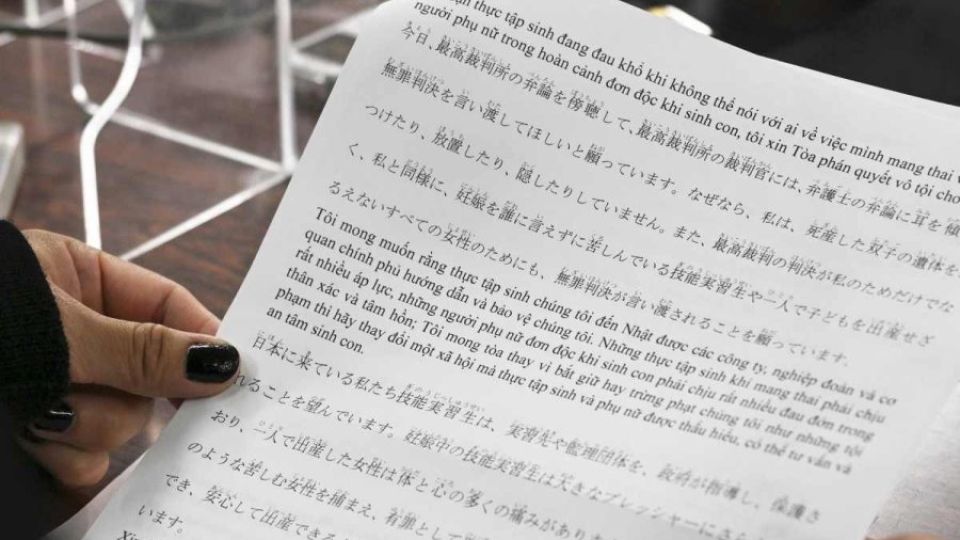 thực tập sinh đang đau khổ khi không thể nói với ai về việc mình mang thai v
người phụ nữ trong hoàn cảnh đơn độc khi sinh con, tôi xin Tòa phán quyết vô tội cho
今日、最高裁判所の弁論を傍聴して、最高裁判所の裁判官には、弁護士の弁論に耳を傾
無罪判決を言い渡してほしいと願っています。なぜなら、私は、死産した双子の遺体を
つけたり、放置したり、隠したりしていません。また、最高裁判所の判決が私のためだけでな
く、私と同様に、妊娠を誰に言えずに苦しんでいる技能実習生や一人で子どもを出産せざ
るえないすべての女性のためにも、無罪判決が言い渡されることを願っています。
Tôi mong muốn rằng thực tập sinh chúng tôi đến Nhật được các công ty, nghiệp đoàn và cơ
quan chính phủ hướng dẫn và bảo vệ chúng tôi. Những thực tập sinh khi mang thai phải chịu
rất nhiều áp lực, những người phụ nữ đơn độc khi sinh con phải chịu rất nhiều đau đớn trong
thân xác và tâm hồn; Tôi mong tòa thay vì bắt giữ hay trừng phạt chúng tôi như những tội
phạm thì hãy thay đổi một xã hội mà thực tập sinh và phụ nữ được thấu hiểu, có thể tư vấn và
an tâm sinh con.
日本に来ている私たち技能実習生は、実習先や監理団体を、政府が指導し、保護さ
れることを望んでいます。妊娠中の技能実習生は大きなプレッシャーにさら
おり、一人で出産した女性は体と心の多くの痛みがあり
のような苦しむ女性を捕まえ、有罪として
でき、安心して出産できる
います。
Xin